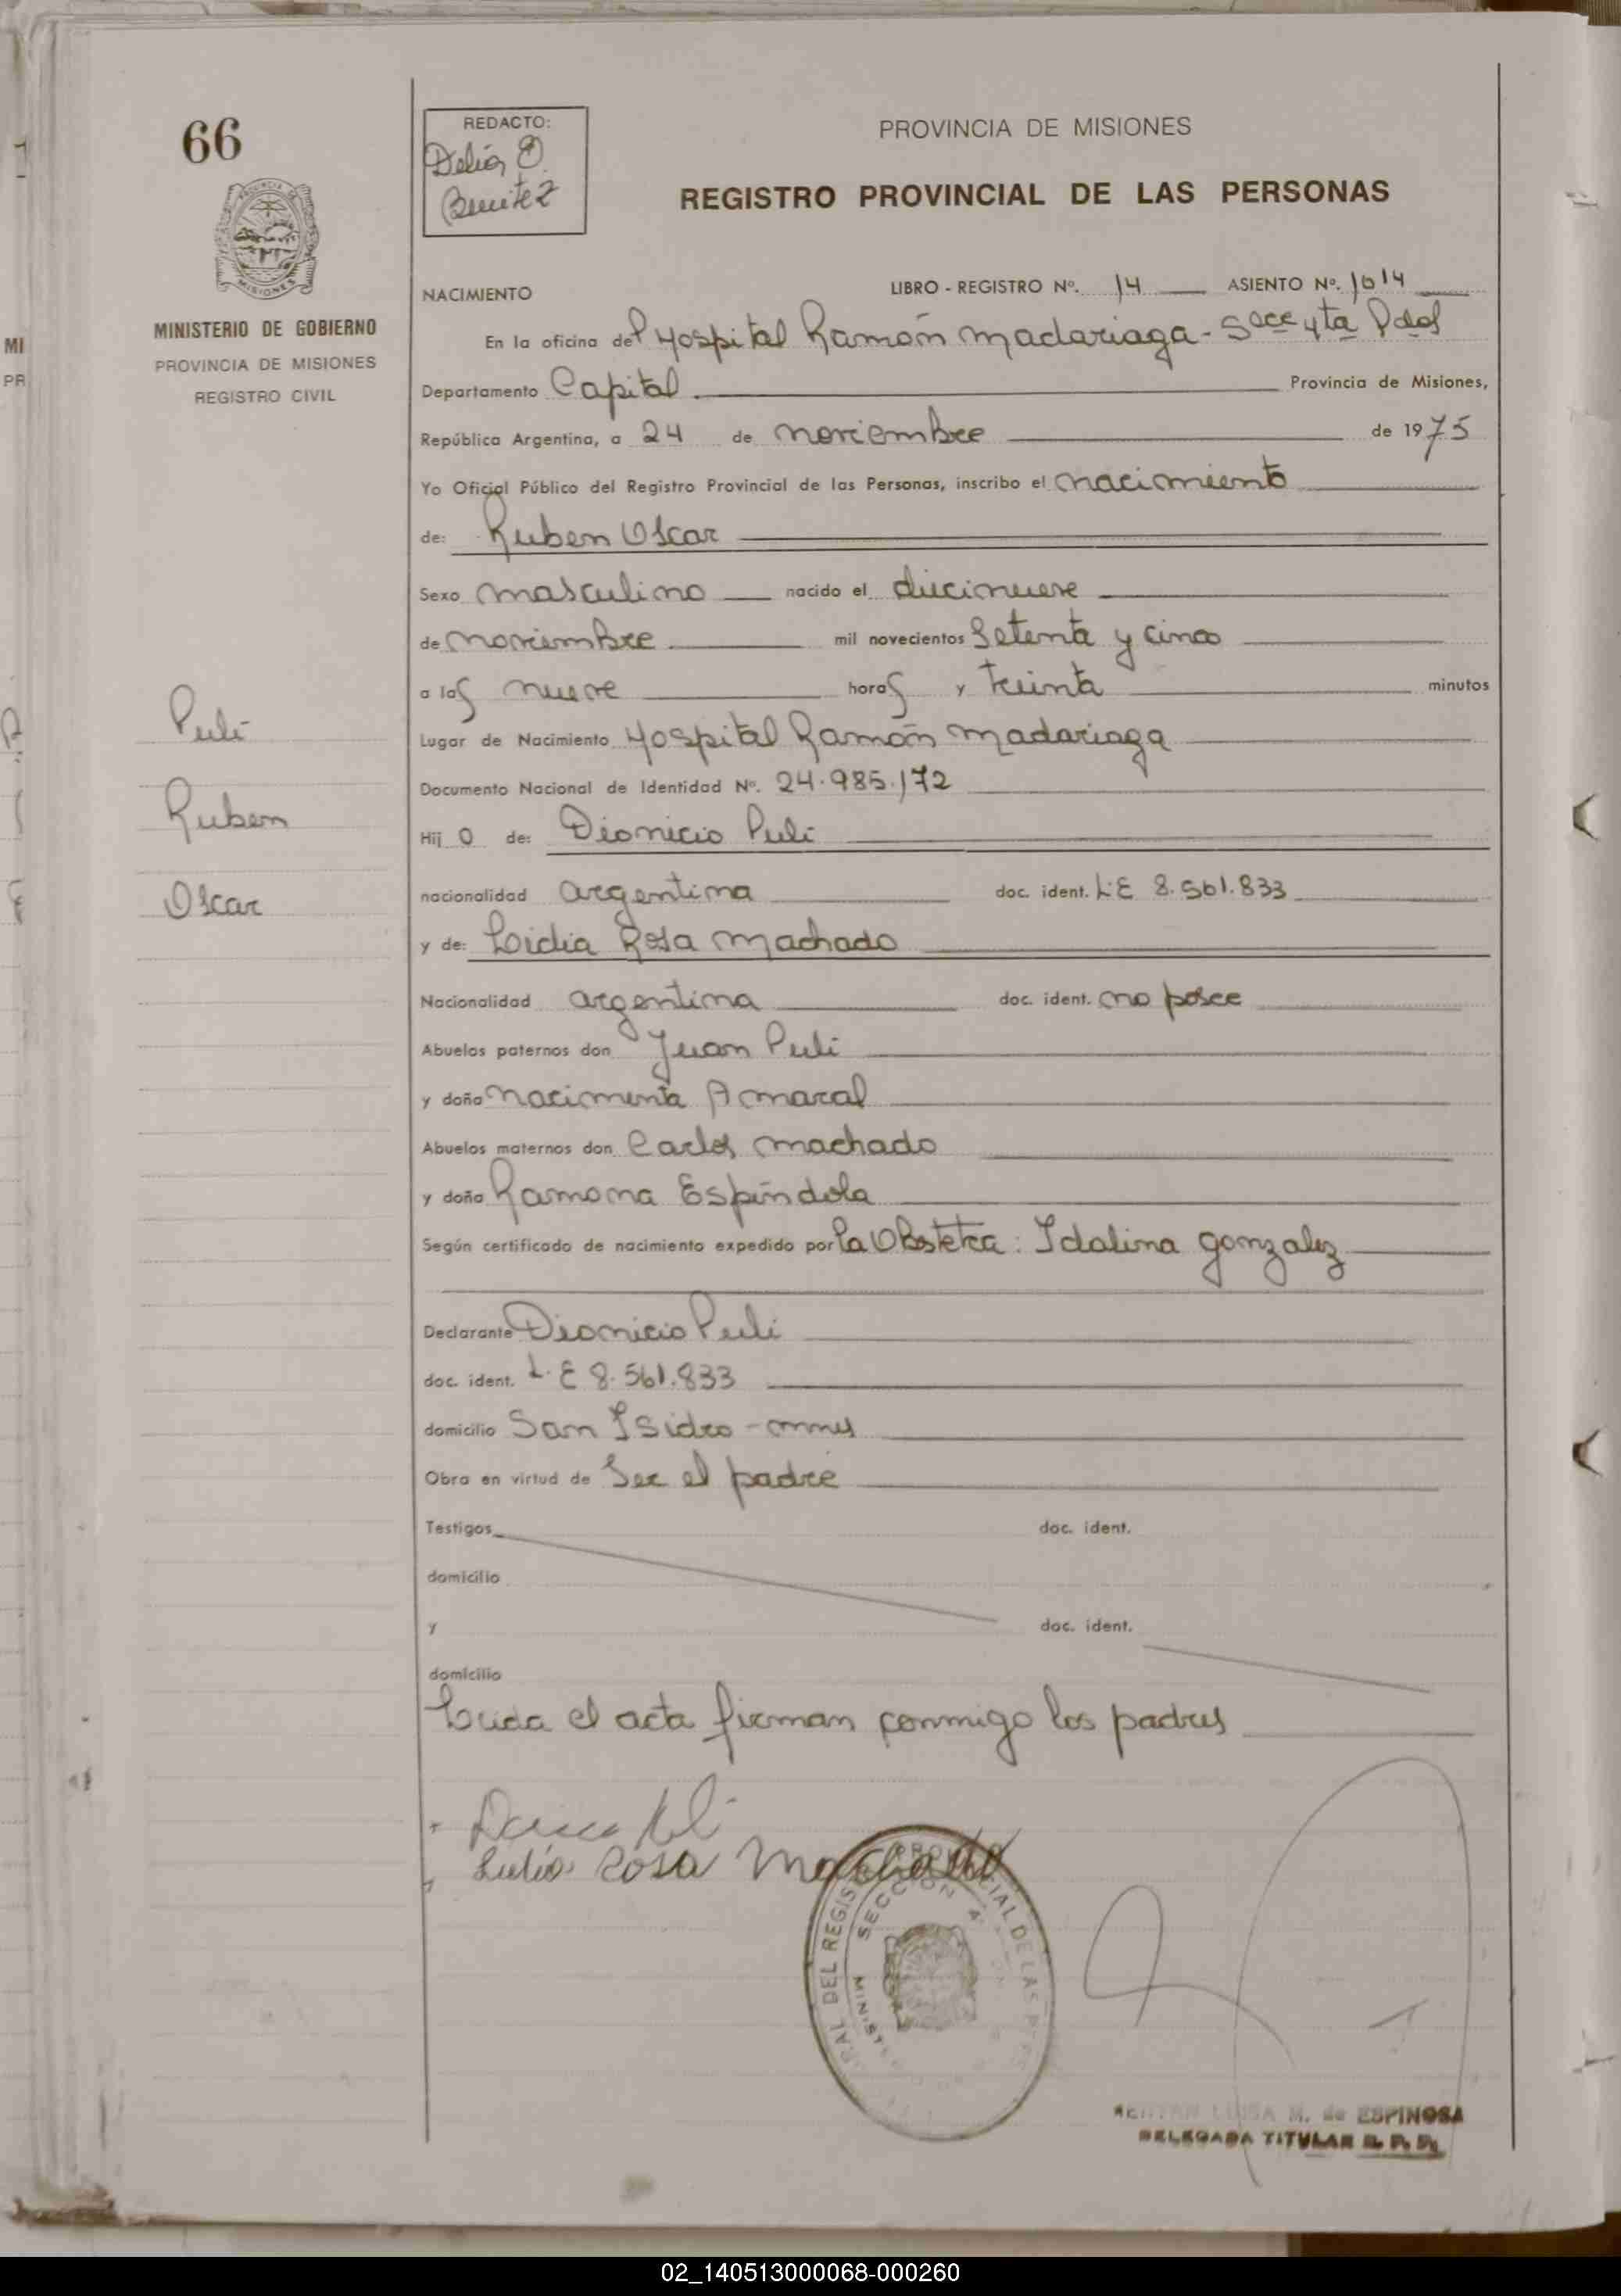 66
REDACTO:
Delia O.
Benitez
PROVINCIA DE MISIONES
REGISTRO PROVINCIAL DE LAS PERSONAS
MISIONES
MINISTERIO DE GOBIERNO
PROVINCIA DE MISIONES
REGISTRO CIVIL
MI
PR
NACIMIENTO LIBRO - REGISTRO Nº. 14 ASIENTO Nº. 1014
En la oficina del Hospital Ramón Madariaga - Secc 4ta Pdas
Departamento Capital Provincia de Misiones,
República Argentina, a 24 de noviembre de 1975
Yo Oficial Público del Registro Provincial de las Personas, inscribo el nacimiento
de: Ruben Oscar
Sexo masculino nacido el diecinueve
de noviembre mil novecientos Setenta y cinco
a las nueve horas y treinta minutos
Lugar de Nacimiento Hospital Ramón Madariaga
Documento Nacional de Identidad Nº. 24.985.172
Hijo de: Dionicio Puli
nacionalidad argentina doc. ident. L.E 8.561.833
y de: Lidia Rosa Machado
Nacionalidad argentina doc. ident. no posee
Abuelos paternos don Juan Puli
y doña Nacimenta Amaral
Abuelos maternos don Carlos Machado
y doña Ramona Espíndola
Según certificado de nacimiento expedido por la Obstetra: Idalina Gonzalez
Declarante Dionicio Puli
doc. ident. L.E 8.561.833
domicilio San Isidro - mnes
Obra en virtud de Ser el padre
Testigos doc. ident.
domicilio
y doc. ident.
domicilio
Leida el acta firman conmigo los padres
Puli
Ruben
Oscar
Lidia Rosa Machado
DEL REGISTRO PROVINCIAL DE LAS
SECCION 4
LUISA M. de ESPINOSA
DELEGADA TITULAR R. P. P.
02_140513000068-000260